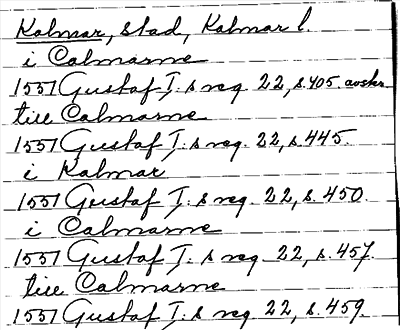 Kalmar, stad, Kalmar l.
i Calmarne
1551 Gustaf I:s reg. 22, s. 405. avskr.
till Calmarne
1551 Gustaf I:s reg. 22, s. 445.
i Kalmar
1551 Gustaf I:s reg. 22, s. 450.
i Calmarne
1551 Gustaf I:s reg. 22, s. 457.
till Calmarne
1551 Gustaf I:s reg. 22, s. 459.